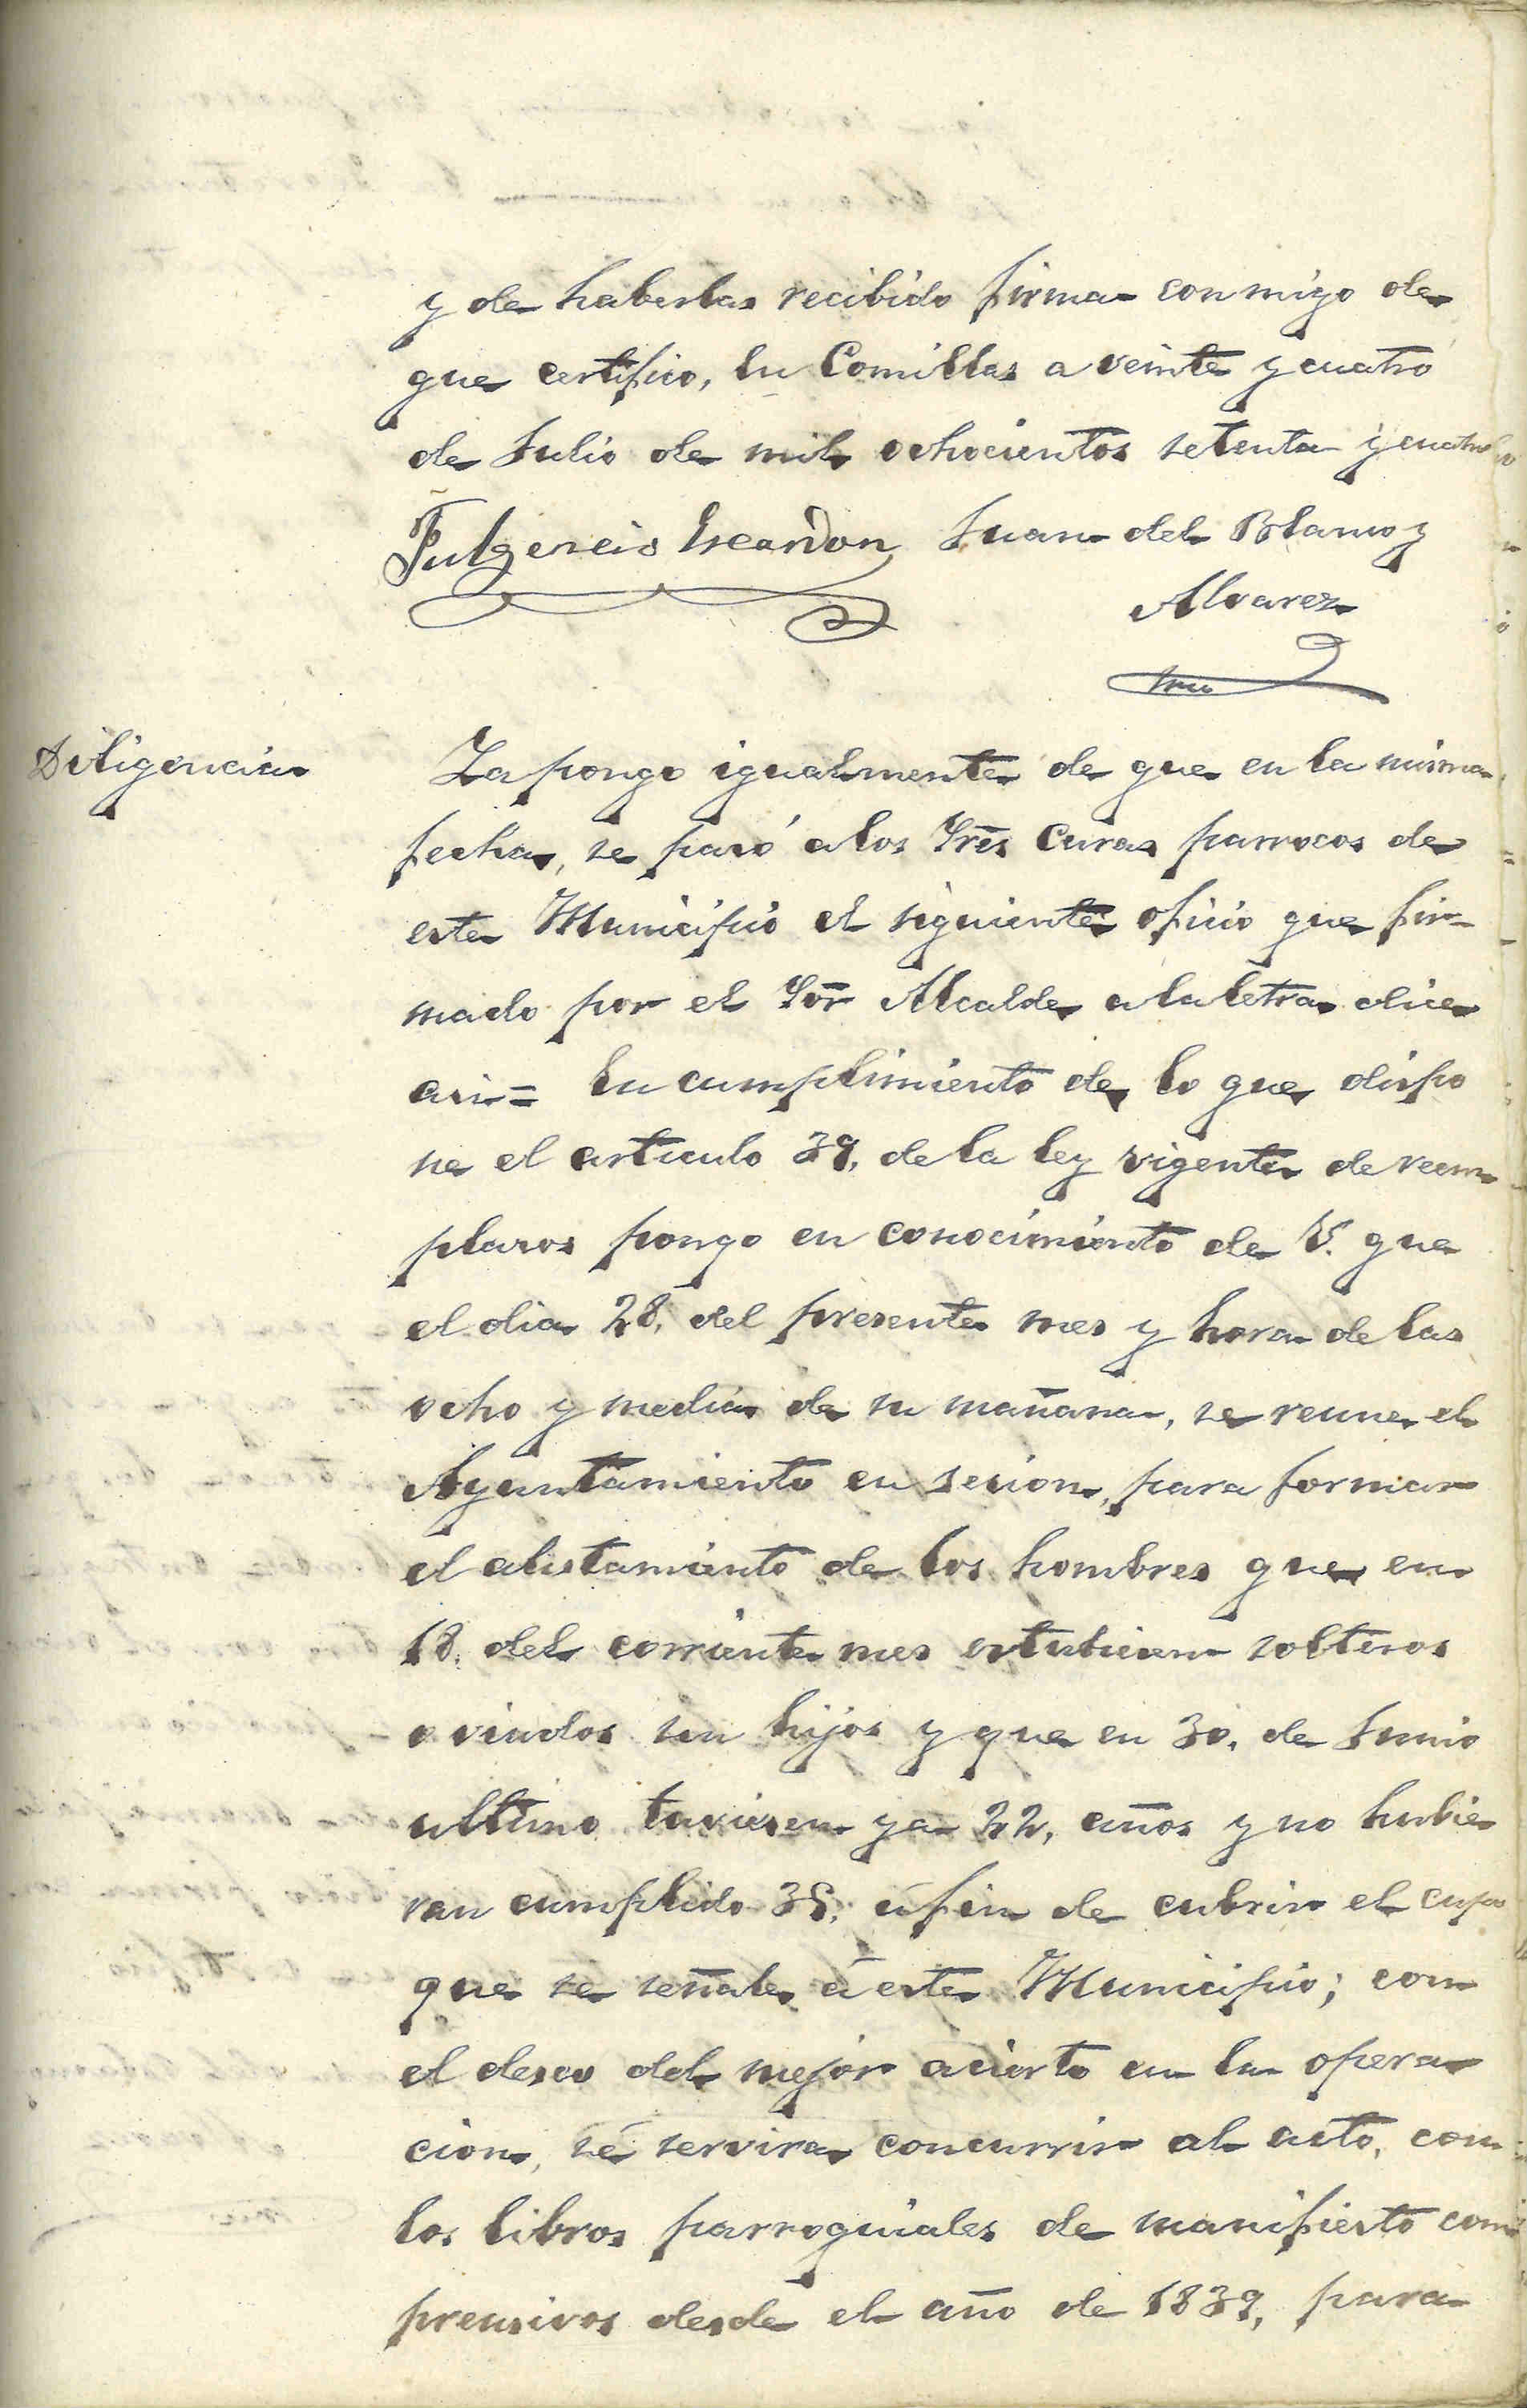 y de haberlas recibido firma conmigo de
que certifico, En Comillas a veinte y cuatro
de Julio de mil ochocientos setenta y cuatro
Fulgencio Escandon Juan del Blanco y
Alvarez
Srio
Diligencia
La pongo igualmente de que en la misma
fecha, se pasó a los Sres Curas parrocos de
este Municipio el siguiente oficio que fir-
mado por el Sor Alcalde a la letra dice
asi= En cumplimiento de lo que dispo
ne el articulo 39, de la ley vigente de reem
plazos pongo en conocimiento de V. que
el dia 28, del presente mes y hora de las
ocho y media de su mañana, se reune el
Ayuntamiento en sesion, para formar
el alistamiento de los hombres que en
18. del corriente mes estubiesen solteros
o viudos sin hijos y que en 30, de Junio
ultimo tuviesen ya 22, años y no hubie
ran cumplido 35, á fin de cubrir el cupo
que se señale á este Municipio; con
el deseo del mejor acierto en la opera
cion, se servira concurrir al acto, con
los libros parroquiales de manifiesto com
prensivos desde el año de 1839, para